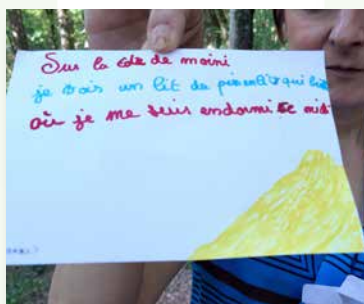 Sur la de moini
je vois un lit de pissenlits qui
où je me suis endormi ce midi